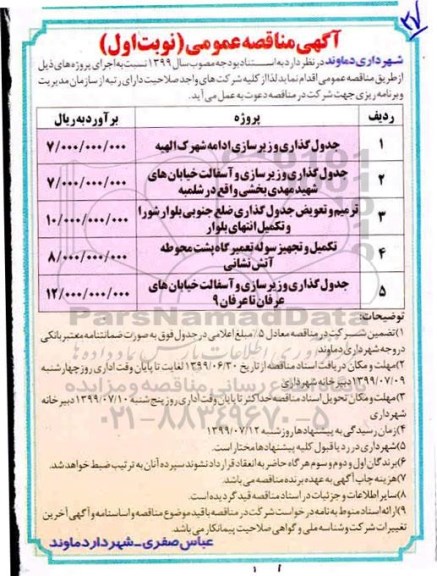 ۲۷
آگهی مناقصه عمومی (نوبت اول)
شهرداری دماوند در نظر دارد به استناد بودجه مصوب سال ۱۳۹۹ نسبت به اجرای پروژه های ذیل
از طریق مناقصه عمومی اقدام نماید لذا از کلیه شرکت های واجد صلاحیت دارای رتبه از سازمان مدیریت
و برنامه ریزی جهت شرکت در مناقصه دعوت به عمل می آید.
ردیف پروژه برآورد به ریال
۱ جدول گذاری و زیرسازی ادامه شهرک الهیه ۷/۰۰۰/۰۰۰/۰۰۰
۲ جدول گذاری و زیرسازی و آسفالت خیابان های شهید مهدی بخشی واقع در شلمبه ۷/۰۰۰/۰۰۰/۰۰۰
۳ ترمیم و تعویض جدول گذاری ضلع جنوبی بلوار شورا و تکمیل انتهای بلوار ۱۰/۰۰۰/۰۰۰/۰۰۰
۴ تکمیل و تجهیز سوله تعمیرگاه پشت محوطه آتش نشانی ۸/۰۰۰/۰۰۰/۰۰۰
۵ جدول گذاری و زیرسازی و آسفالت خیابان های عرفان تا عرفان ۹ ۱۲/۰۰۰/۰۰۰/۰۰۰
توضیحات:
۱) تضمین شرکت در مناقصه معادل ۵٪ مبلغ اعلامی در جدول فوق به صورت ضمانتنامه معتبر بانکی
در وجه شهرداری دماوند
۲) مهلت و مکان دریافت اسناد مناقصه از تاریخ ۱۳۹۹/۰۶/۳۰ لغایت تا پایان وقت اداری روز چهارشنبه
۱۳۹۹/۰۷/۰۹ دبیرخانه شهرداری
۳) مهلت و مکان تحویل اسناد مناقصه حداکثر تا پایان وقت اداری روز پنج شنبه ۱۳۹۹/۰۷/۱۰ دبیرخانه
شهرداری
۴) زمان رسیدگی به پیشنهادها روز شنبه ۱۳۹۹/۰۷/۱۲
۵) شهرداری در رد یا قبول کلیه پیشنهادها مختار است.
۶) برندگان اول و دوم و سوم هرگاه حاضر به انعقاد قرارداد نشوند سپرده آنان به ترتیب ضبط خواهد شد.
۷) هزینه چاپ آگهی به عهده برنده مناقصه می باشد.
۸) سایر اطلاعات و جزئیات در اسناد مناقصه قید گردیده است.
۹) ارائه اسناد منوط به نامه درخواست شرکت در مناقصه با قید موضوع مناقصه و اساسنامه و آگهی آخرین
تغییرات شرکت و شناسه ملی و گواهی صلاحیت پیمانکار می باشد.
عباس صفری - شهردار دماوند
ParsNamadData
۰۲۱-۸۸۳۴۹۶۷۰-۵